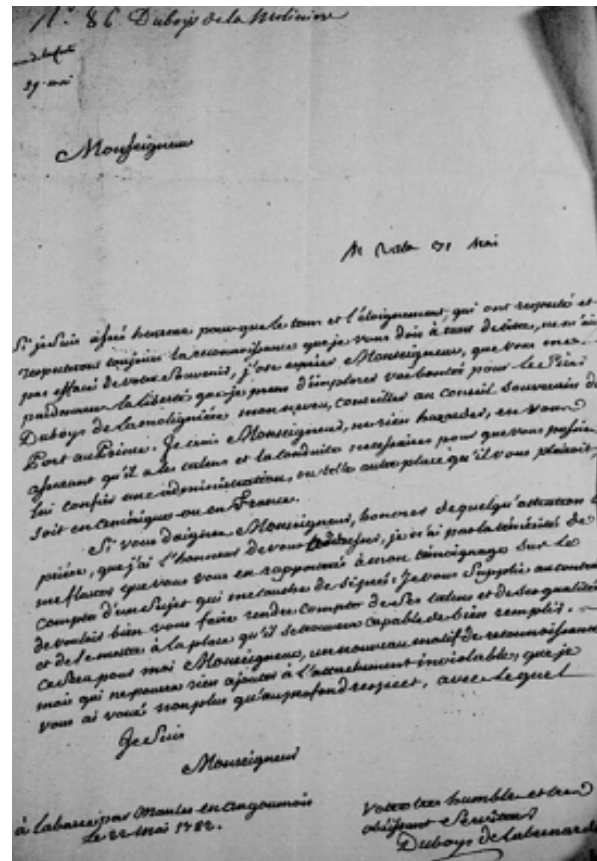 N.° 86 Duboys de la Moliniere
29 mai
Monseigneur
mai
Si je suis assés heureux pour que le tems et l'éloignement, qui ont respecté et
respecteront toujours la reconnoissance que je vous dois à tant de titres, ne m'ai
pas effacé de votre souvenir, j'ose espérer Monseigneur, que vous me
pardonnerez la liberté que je prens d'implorer vos bontés pour le Sieur
Duboys de Lamolignière mon neveu, conseiller au conseil souverain du
Port au Prince. Je crois Monseigneur, ne rien hazarder, en vous
assurant qu'il a les talens et la conduite necessaires pour que vous puissiez
lui confier une administration, ou telle autre place qu'il vous plairoit,
soit en amérique ou en France.
Si vous daignez Monseigneur, honorer de quelqu'attention la
prière, que j'ai l'honneur de vous adresser, je n'ai pas la témérité de
me flatter que vous vous en rapporterés à mon témoignage sur le
compte d'un sujet qui me touche de si près: Je vous supplie au contraire
de vouloir bien vous faire rendre compte de ses talens et de ses qualités
et de le mettre à la place qu'il se trouvera capable de bien remplir.
Ce sera pour moi Monseigneur, un nouveau motif de reconnoissance
mais qui ne pourra rien ajouter à l'attachement inviolable, que je
vous ai voué non plus qu'au profond respect, avec lequel
Je suis
Monseigneur
à Labarre par Mansles en angoumois
Le 22 mai 1782.
Votre tres humble et tres
obéissant Serviteur
Duboys de Labernarde